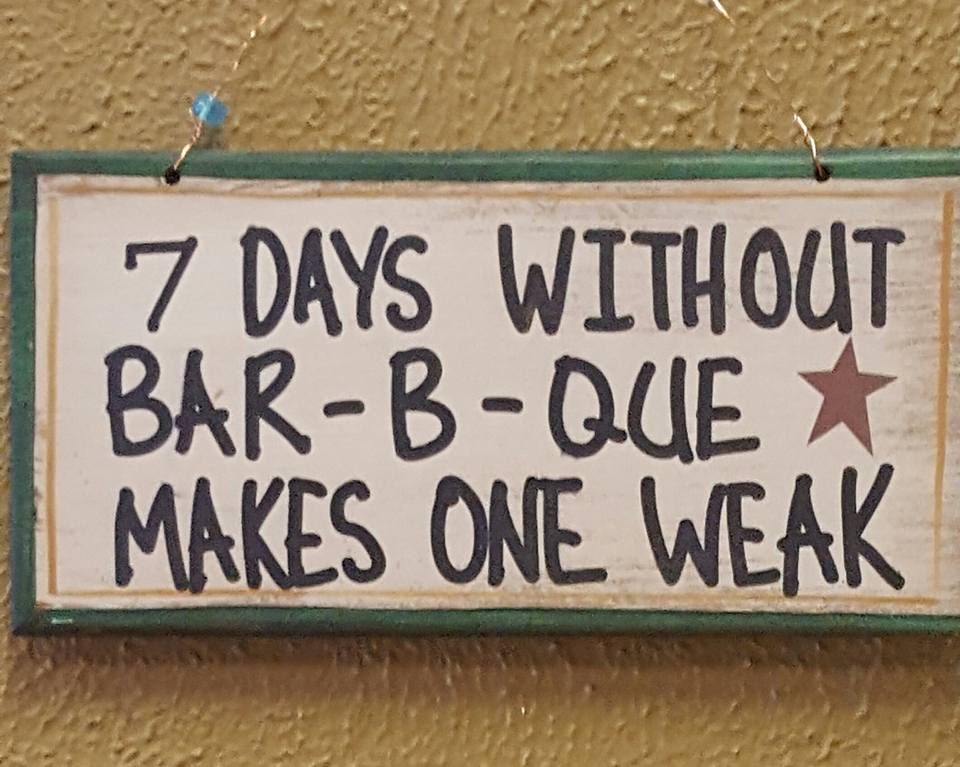 7 DAYS WITHOUT
BAR-B-QUE
MAKES ONE WEAK